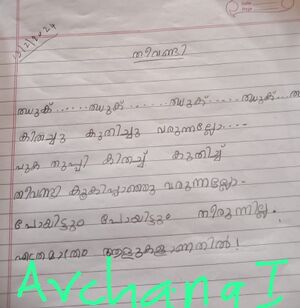 13/2/2024
തീവണ്ടി
ഝുക്......ഝുക്......ഝുക്.....ഝുക്...
കിതച്ചു കുതിച്ചു വരുന്നല്ലോ....
പുക തുപ്പി കിതച്ച് കുതിച്ച്
തീവണ്ടി കൂകിപ്പാഞ്ഞു വരുന്നല്ലോ.
പോയിട്ടും പോയിട്ടും തീരുന്നില്ല.
എത്രമാത്രം ആളുകളാണതിൽ!
Avchana T